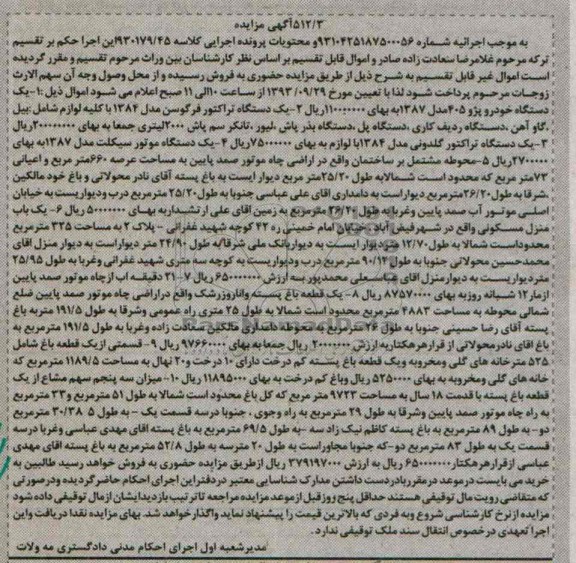 ۵۱۲/۳آگهی مزایده
به موجب اجرائیه شماره ۹۳۱۰۴۲۵۱۸۷۵۰۰۰۵۶و محتویات پرونده اجرایی کلاسه ۹۳۰۱۷۹/۴۵این اجرا حکم بر تقسیم
ترکه مرحوم غلامرضا سعادت زاده صادر و اموال قابل تقسیم بر اساس نظر کارشناسان بین وراث مرحوم تقسیم و مقرر گردیده
است اموال غیر قابل تقسیم به شرح ذیل از طریق مزایده حضوری به فروش رسیده و از محل وصول وجه آن سهم الارث
زوجات مرحوم پرداخت شود لذا با تعیین مورخ ۱۳۹۳/۰۹/۲۹ از ساعت ۱۰الی ۱۱ صبح اعلام می شود اموال ذیل :۱-یک
دستگاه خودرو پژو ۴۰۵مدل ۱۳۸۷به بهای ۱۱۰۰۰۰۰۰۰ریال ۲-یک دستگاه تراکتور فرگوسن مدل ۱۳۸۴ با کلیه لوازم شامل :بیل
،گاو آهن ،دستگاه ردیف کاری ،دستگاه پل ،دستگاه بذر پاش ،لیور ،تانکر سم پاش ۲۰۰۰لیتری جمعا به بهای ۲۰۰۰۰۰۰۰۰ریال
۳-یک دستگاه تراکتور گلدونی مدل ۱۳۸۴با لوازم به بهای ۷۵۰۰۰۰۰۰ریال ۴-یک دستگاه موتور سیکلت مدل ۱۳۸۷به بهای
۲۷۰۰۰۰۰ریال ۵-محوطه مشتمل بر ساختمان واقع در اراضی چاه موتور صمد پایین به مساحت عرصه ۶۶۰متر مربع و اعیانی
۷۳متر مربع که محدود است شمالا به طول ۲۵/۲۰متر مربع دیوار ایست به باغ پسته آقای نادر محولاتی و باغ خود مالکین
،شرقا به طول ۲۶/۲۰مترمربع دیواراست به دامداری اقای علی عباسی جنوبا به طول ۲۵/۲۰ مترمربع درب ودیواریست به خیابان
اصلی موتور آب صمد پایین وغربا به طول ۲۶/۲۰ مترمربع به زمین اقای علی ارتشیدار به بهای ۵۰۰۰۰۰۰۰ ریال ۶- یک باب
منزل مسکونی واقع در شهرفیض آباد خیابان امام خمینی ره ۴۲ کوچه شهید غفرانی - پلاک ۲ به مساحت ۳۲۵ مترمربع
محدوداست شمالا به طول ۱۲/۷۰ متر دیوار ایست به دیواربانک ملی شرقا به طول ۲۴/۹۰ متر دیواراست به دیوار منزل اقای
محمدحسین محولاتی جنوبا به طول ۹۰/۱۴ مترمربع درب ودیواریست به کوچه سه متری شهید غفرانی وغربا به طول ۲۵/۹۵
متردیواریست به دیوارمنزل اقای محمدپور به ارزش ۶۵۰۰۰۰۰۰۰ ریال ۷-۲۱ دقیقه اب ازچاه موتور صمد پایین
ازمدار ۱۲ شبانه روزبه بهای ۸۷۵۷۰۰۰۰ ریال ۸- یک قطعه باغ پسته واناروزرشک واقع دراراضی چاه موتور صمد پایین ضلع
شمالی محوطه به مساحت ۴۸۸۳ مترمربع محدود است شمالا به طول ۲۵ متری راه عمومی وشرقا به طول ۱۹۱/۵ متربه باغ
پسته آقای رضا حسینی جنوبا به طول ۲۶ مترمربع به محوطه دامداری مالکین سعادت زاده وغربا به طول ۱۹۱/۵ مترمربع به
باغ اقای نادرمحولاتی از قرارهرهکتاربه ارزش ۲۰۰۰۰۰۰۰۰ ریال جمعا به بهای ۹۷۶۶۰۰۰۰ ریال ۹- قسمتی از یک قطعه باغ شامل
۵۲۵ متر خانه های گلی ومخروبه ویک قطعه باغ پسته کم درخت دارای ۱۰ درخت و ۲۰ نهال به مساحت ۱۱۸۹/۵ مترمربع که
خانه های گلی ومخروبه به بهای ۵۲۵۰۰۰۰ ریال وباغ کم درخت به بهای ۱۱۸۹۵۰۰۰ ریال ۱۰- میزان سه پنجم سهم مشاع از یک
قطعه باغ پسته با قدمت ۱۸ سال به مساحت ۹۷۲۳ متر مربع که کل باغ محدود است شمالا به طول ۵۱ مترمربع و ۳۳ مترمربع
به راه چاه موتور صمد پایین وشرقا به طول ۲۹ مترمربع به راه وجوی ، جنوبا درسه قسمت یک - به طول ۳۰/۳۸ مترمربع
دو- به طول ۸۹ مترمربع به باغ پسته کاظم نیک زاد سه -به طول ۶۹/۵ مترمربع به باغ پسته اقای مهدی عباسی وغربا درسه
قسمت یک به طول ۸۳ مترمربع دو-که جنوبا مجاوراست به طول ۲۰ مترسه به طول ۵۲/۸ مترمربع به باغ پسته اقای مهدی
عباسی ازقرارهرهکتار ۶۵۰۰۰۰۰۰۰ ریال به ارزش ۳۷۹۱۹۷۰۰۰ ریال ازطریق مزایده حضوری به فروش خواهد رسید طالبین به
خرید می بایست درموعد در مقررباردردست داشتن مدارک شناسایی معتبر دردفتراین اجرای احکام حاضرگردیده ودرصورتی
که متقاضی رویت مال توقیفی هستند حداقل پنج روزقبل ازموعد مزایده مراجعه تاترتیب بازدیدایشان ازمال توقیفی داده شود
مزایده ازنرخ کارشناسی شروع وبه فردی که بالاترین قیمت را پیشنهاد نماید واگذارخواهد شد. بهای مزایده نقدا دریافت واین
اجرا تعهدی درخصوص انتقال سند ملک توقیفی ندارد.
مدیرشعبه اول اجرای احکام مدنی دادگستری مه ولات